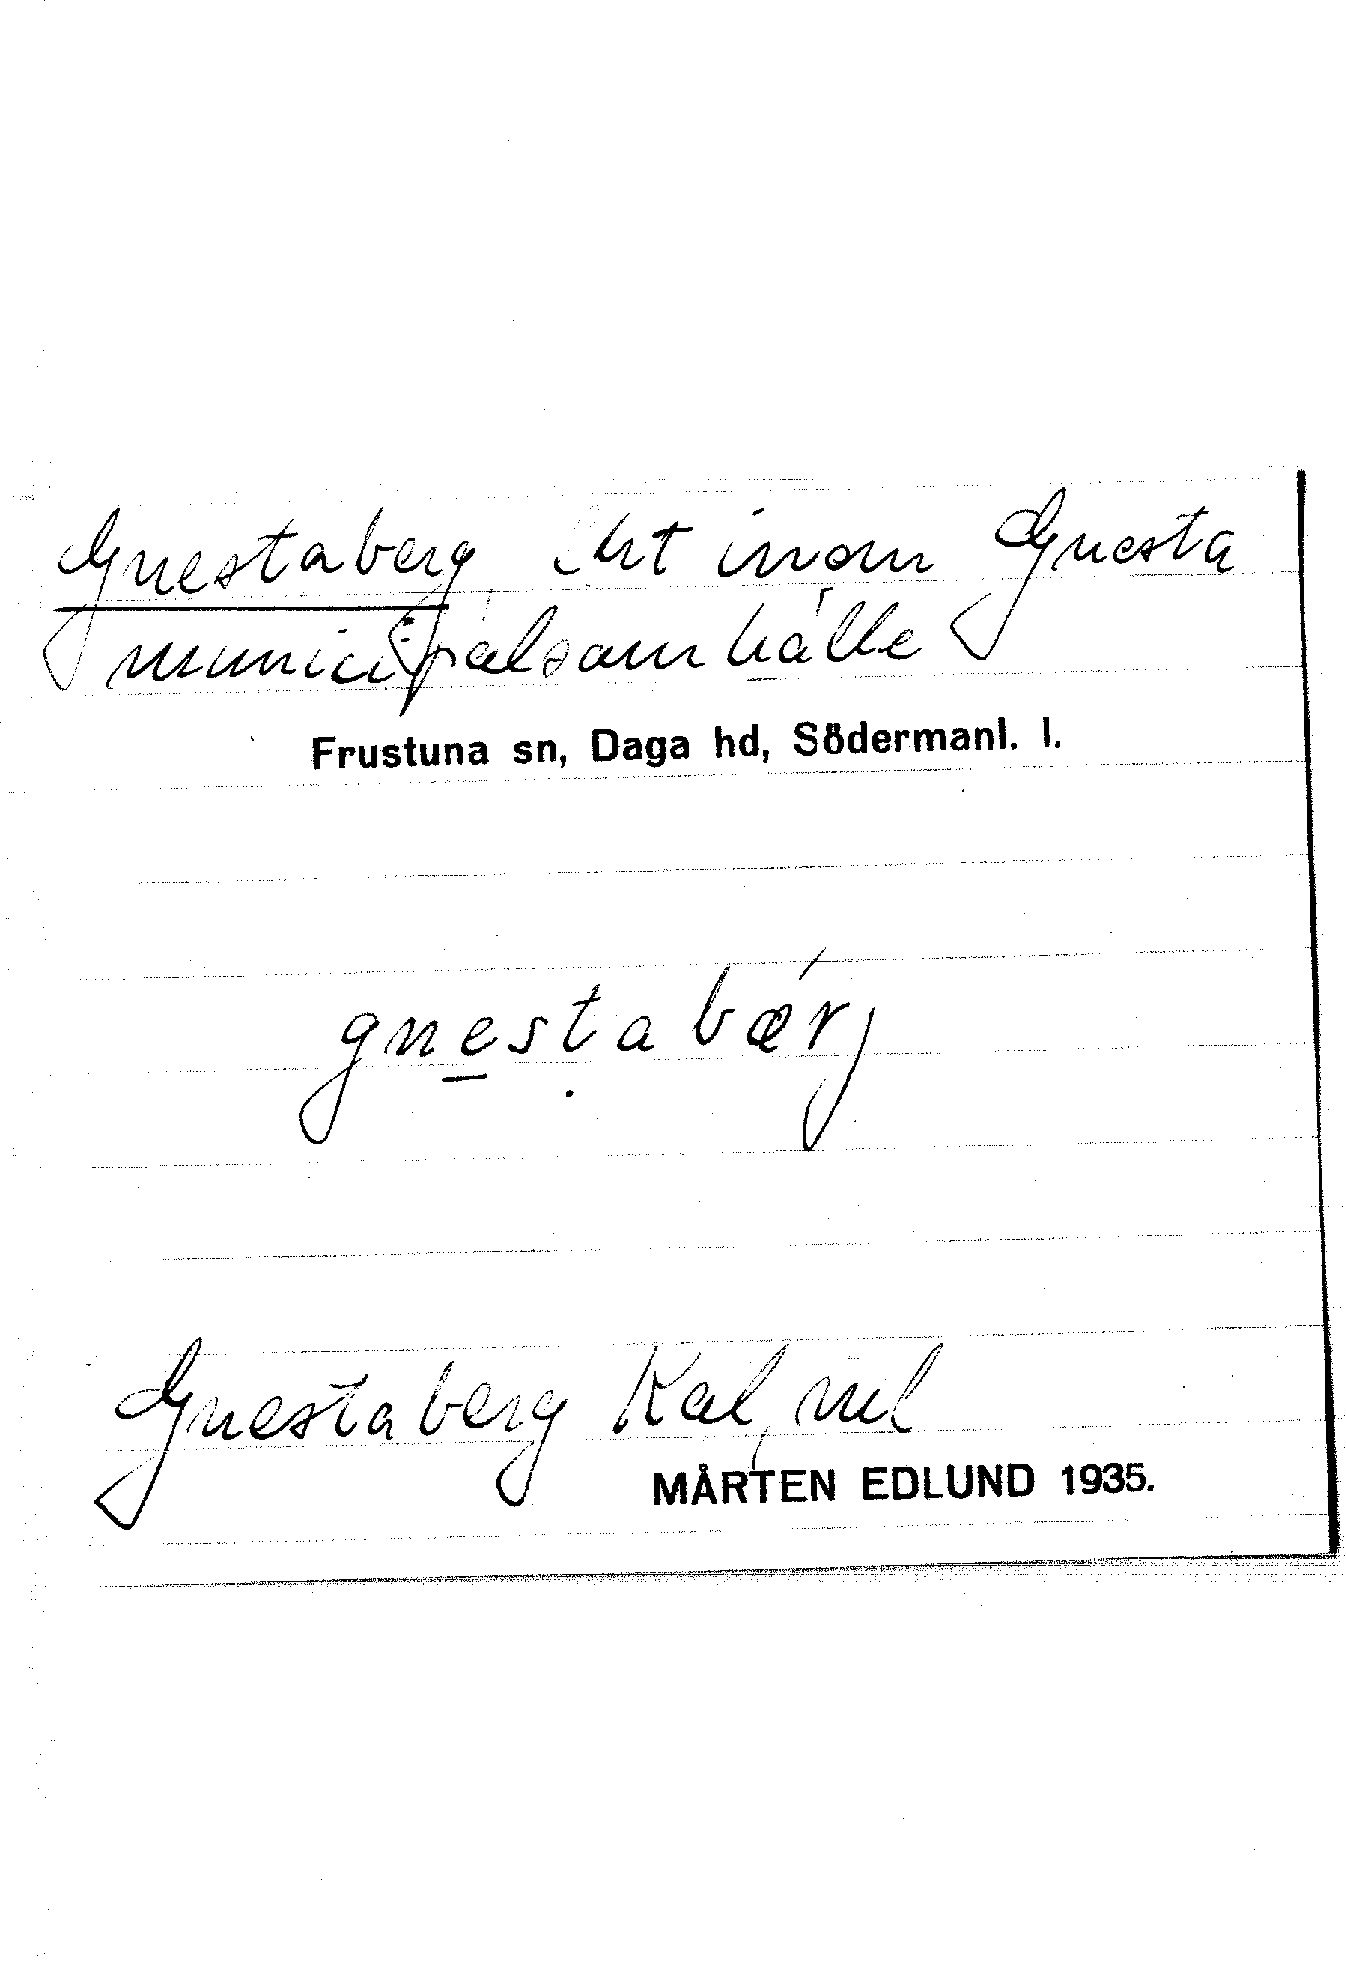 Gnestaberg, ort inom Gnesta
municipalsamhälle
Frustuna sn, Daga hd, Södermanl. l.
gnestabærj
Gnestaberg Kal, nul
MÅRTEN EDLUND 1935.